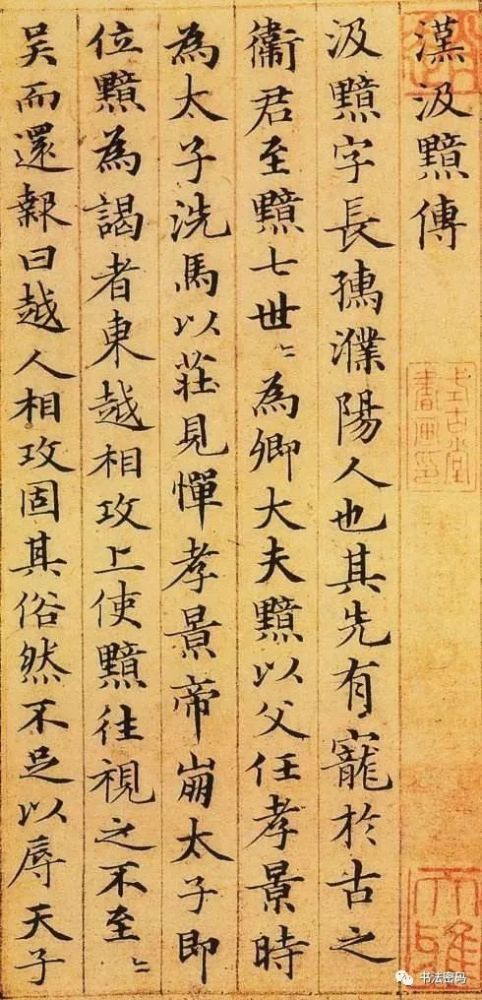 漢汲黯傳
汲黯字長孺濮陽人也其先有寵於古之
衞君至黯七世〻為卿大夫黯以父任孝景時
為太子洗馬以莊見憚孝景帝崩太子即
位黯為謁者東越相攻上使黯往視之不至〻
吳而還報曰越人相攻固其俗然不足以辱天子
式古堂
書畫印
书法密码